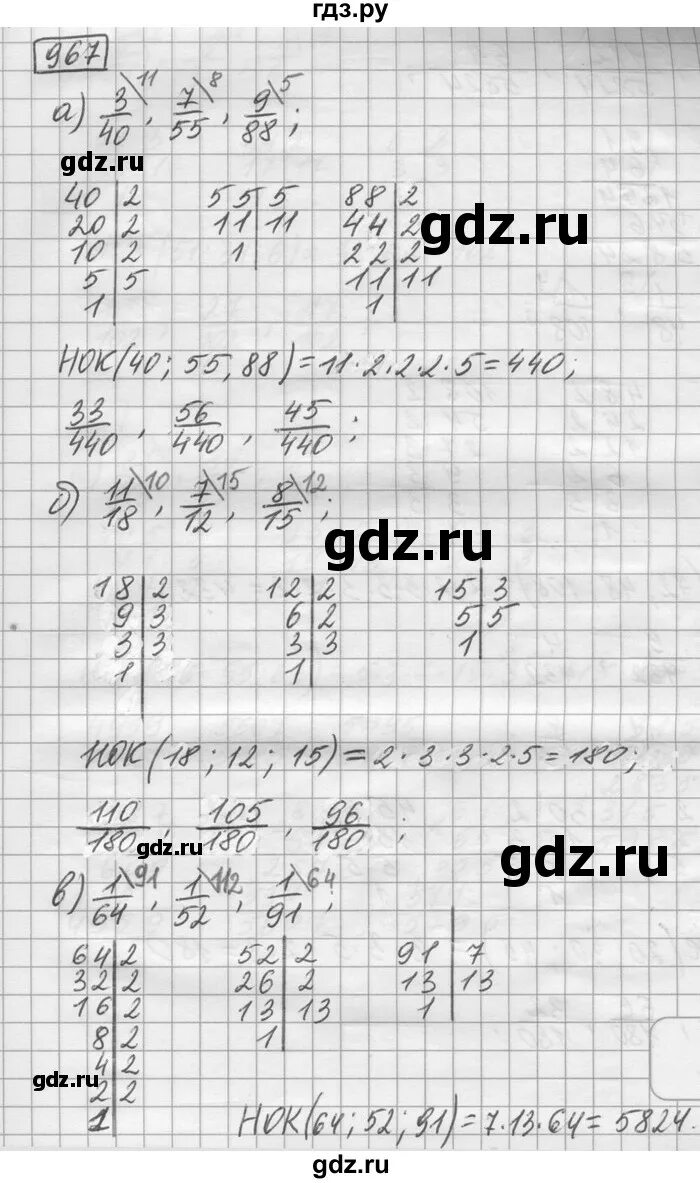 гдз.ру
967
а) 3/40 \11, 7/55 \8, 9/88 \5;
gdz.ru
40|2 55|5 88|2
20|2 11|11 44|2
10|2 1| 22|2
5|5 11|11
1| 1|
gdz.ru
НОК(40; 55, 88) = 11·2·2·2·5 = 440;
33/440, 56/440, 45/440;
б) 11/18 \10, 7/12 \15, 8/15 \12;
gdz.ru
18|2 12|2 15|3
9|3 6|2 5|5
3|3 3|3 1|
1| 1|
НОК(18; 12; 15) = 2·3·3·2·5 = 180;
110/180, 105/180, 96/180;
gdz.ru
gdz.ru
в) 1/64 \91, 1/52 \112, 1/91 \64;
64|2 52|2 91|7
32|2 26|2 13|13
16|2 13|13 1|
8|2 1|
4|2
2|2
1|
gdz.ru
gdz.ru
НОК(64; 52; 91) = 7·13·64 = 5824.
gdz.ru